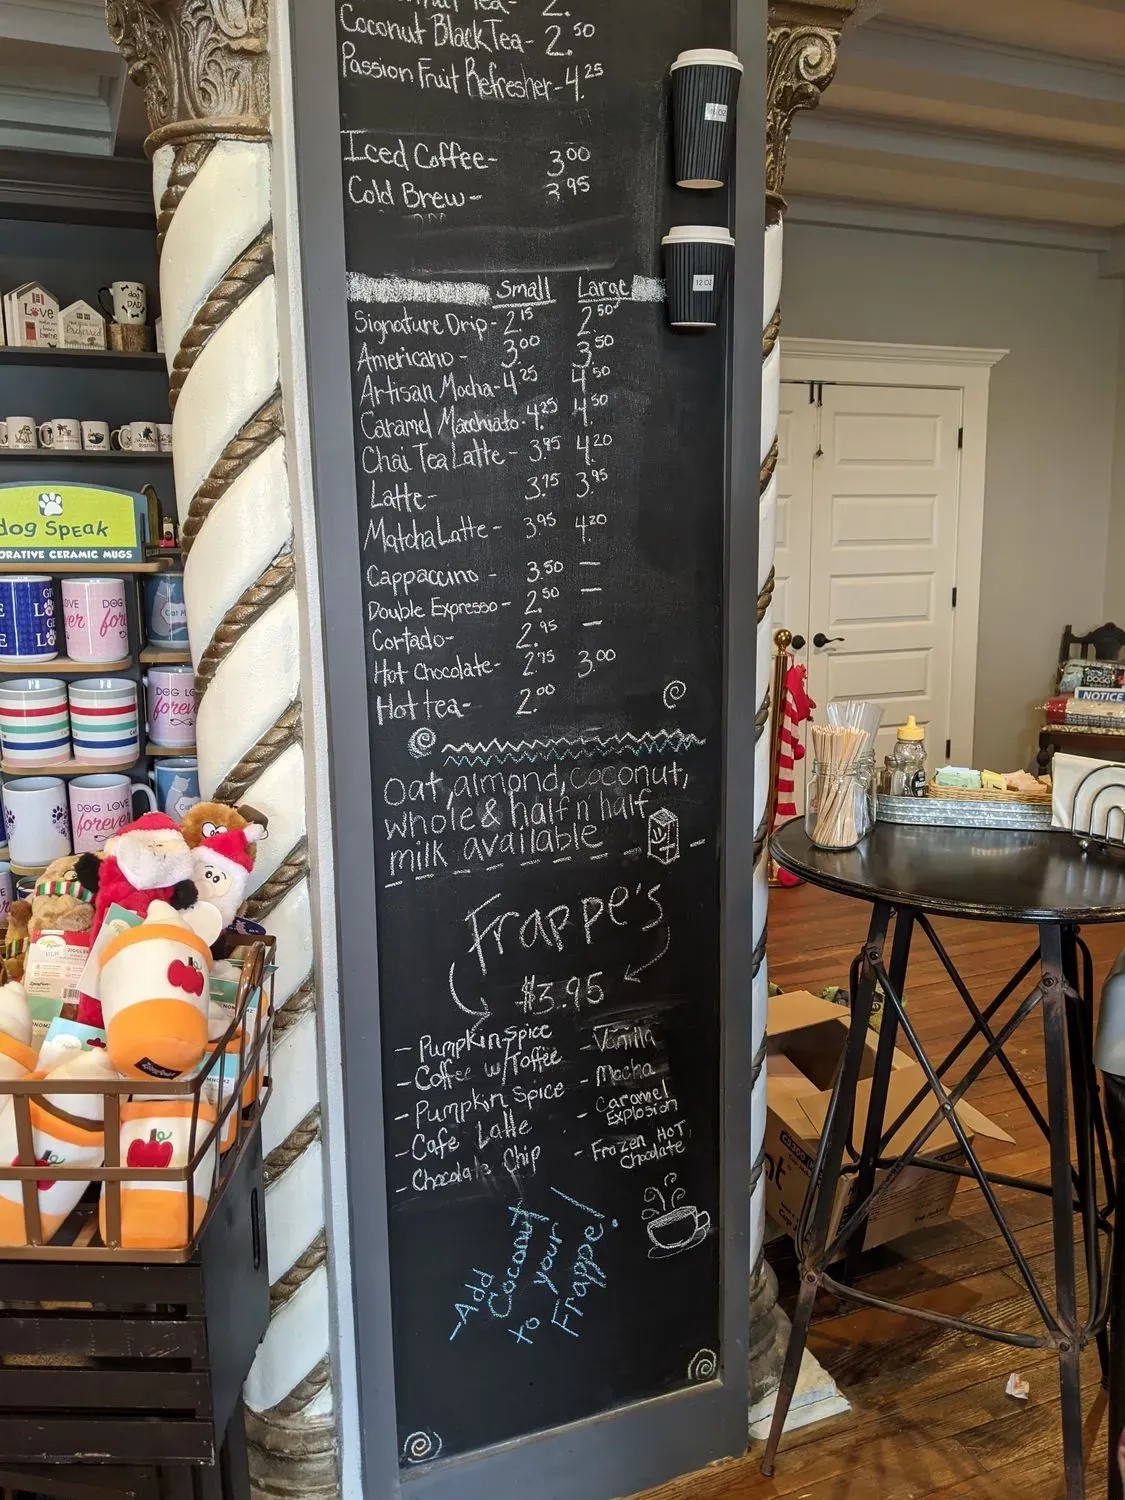 Tea- 2.
Coconut Black Tea- 2.50
Passion Fruit Refresher- 4.25
Iced Coffee- 3.00
Cold Brew- 3.95
Small Large
Signature Drip- 2.15 2.50
Americano- 3.00 3.50
Artisan Mocha- 4.25 4.50
Caramel Macchiato- 4.25 4.50
Chai Tea Latte- 3.95 4.20
Latte- 3.75 3.95
Matcha Latte- 3.95 4.20
Cappaccino- 3.50 —
Double Expresso- 2.50 —
Cortado- 2.95 —
Hot Chocolate- 2.75 3.00
Hot tea- 2.00
oat, almond, coconut,
whole & half n' half
milk available
Frappe's
$3.95
- Pumpkin Spice
- Coffee w/Toffee
- Pumpkin Spice
- Cafe Latte
- Chocolate Chip
- Vanilla
- Mocha
- Caramel
Explosion
- Frozen Hot
Chocolate
- Add
Coconut
to your
Frappe!
12 OZ
Love
dog
DAD
dog Speak
ORATIVE CERAMIC MUGS
DOG
DOG LOVE
forever
NOTICE